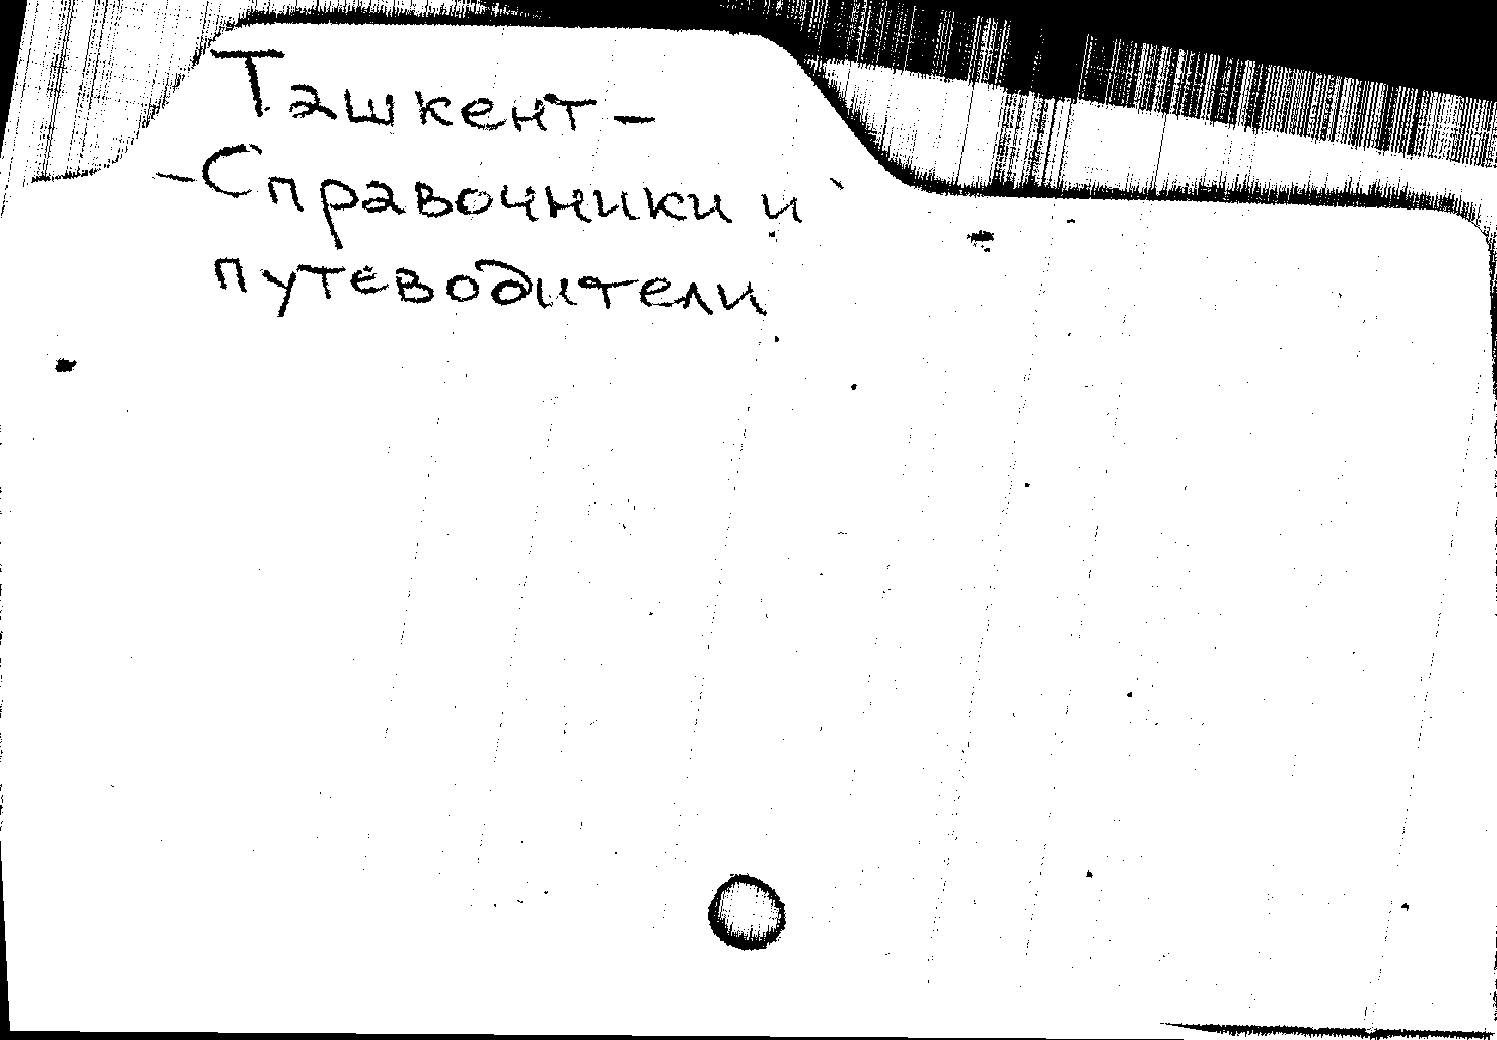 Ташкент-
-Справочники и
путеводители